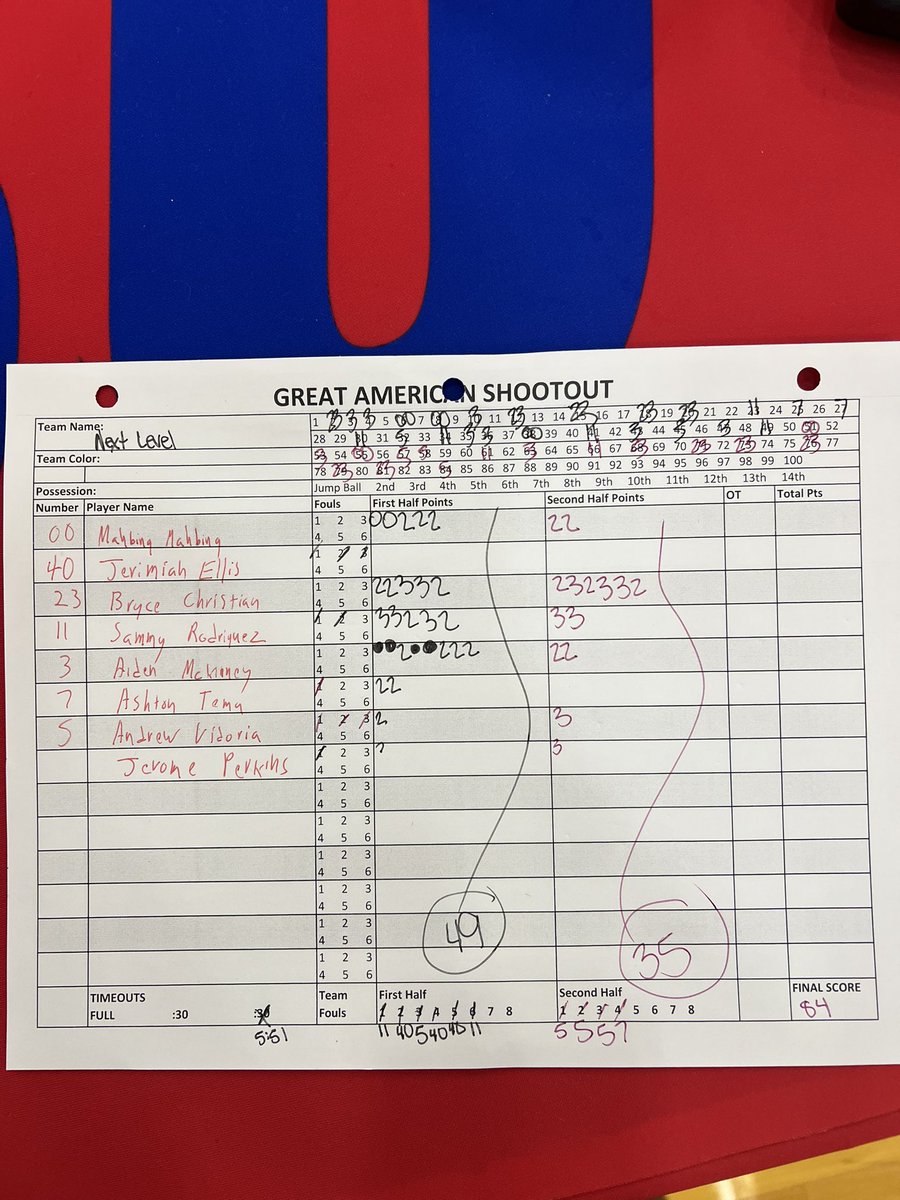 GREAT AMERICAN SHOOTOUT
Team Name: Next Level
1 5 7 9 11 13 14 16 17 18 19 21 22 24 26 27
28 29 31 33 37 39 40 42 46 48 50 51 52
Team Color:
53 54 56 58 59 60 61 62 64 65 66 69 70 72 74 75 77
78 80 82 83 84 85 86 87 88 89 90 91 92 93 94 95 96 97 98 99 100
Possession: Jump Ball 2nd 3rd 4th 5th 6th 7th 8th 9th 10th 11th 12th 13th 14th
Number Player Name Fouls First Half Points Second Half Points OT Total Pts
00 1 2 3 00222 22
4 5 6
40 Jerimiah Ellis 1 2 3
4 5 6
23 Bryce Christian 1 2 3 22332 232332
4 5 6
11 Sammy Rodriquez 1 2 3 33232 33
4 5 6
3 Aiden 1 2 3 2 222 22
4 5 6
7 Ashton 1 2 3 22
4 5 6
5 Andrew 1 2 3 2 3
4 5 6
Jerome Perkins 1 2 3 3
4 5 6
1 2 3
4 5 6
1 2 3
4 5 6
1 2 3
4 5 6
1 2 3
4 5 6
1 2 3
4 5 6
49 35
1 2 3
4 5 6
TIMEOUTS Team First Half Second Half FINAL SCORE
FULL :30 :30 Fouls 1 2 3 4 5 6 7 8 1 2 3 4 5 6 7 8 84
5:51 11 40 5 40 40 11 5 5 5 7